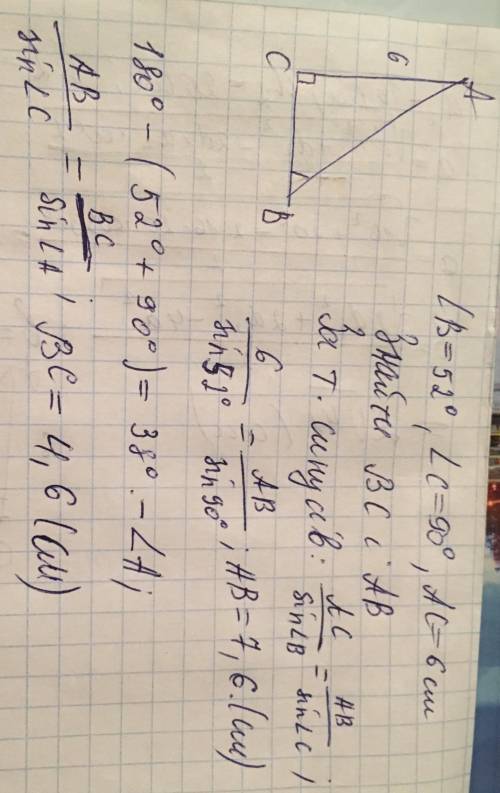 A
6
C
B
∠B=52°, ∠C=90°, AC=6 см
Знайти BC і AB
За т. синусів: AC/sin∠B = AB/sin∠C;
6/sin52° = AB/sin90°; AB=7,6.(см)
180° - (52° + 90°) = 38°. - ∠A;
AB/sin∠C = BC/sin∠A; BC = 4,6 (см)